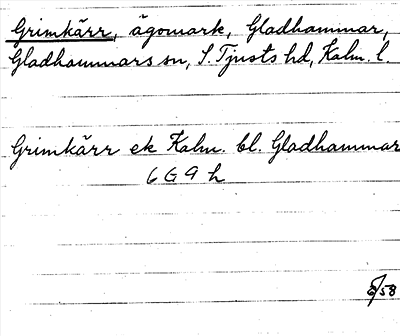 Grimkärr, ägomark, Gladhammar,
Gladhammars sn, S. Tjusts hd, Kalm. l.
Grimkärr ek Kalm. bl. Gladhammar
6 G 9 h